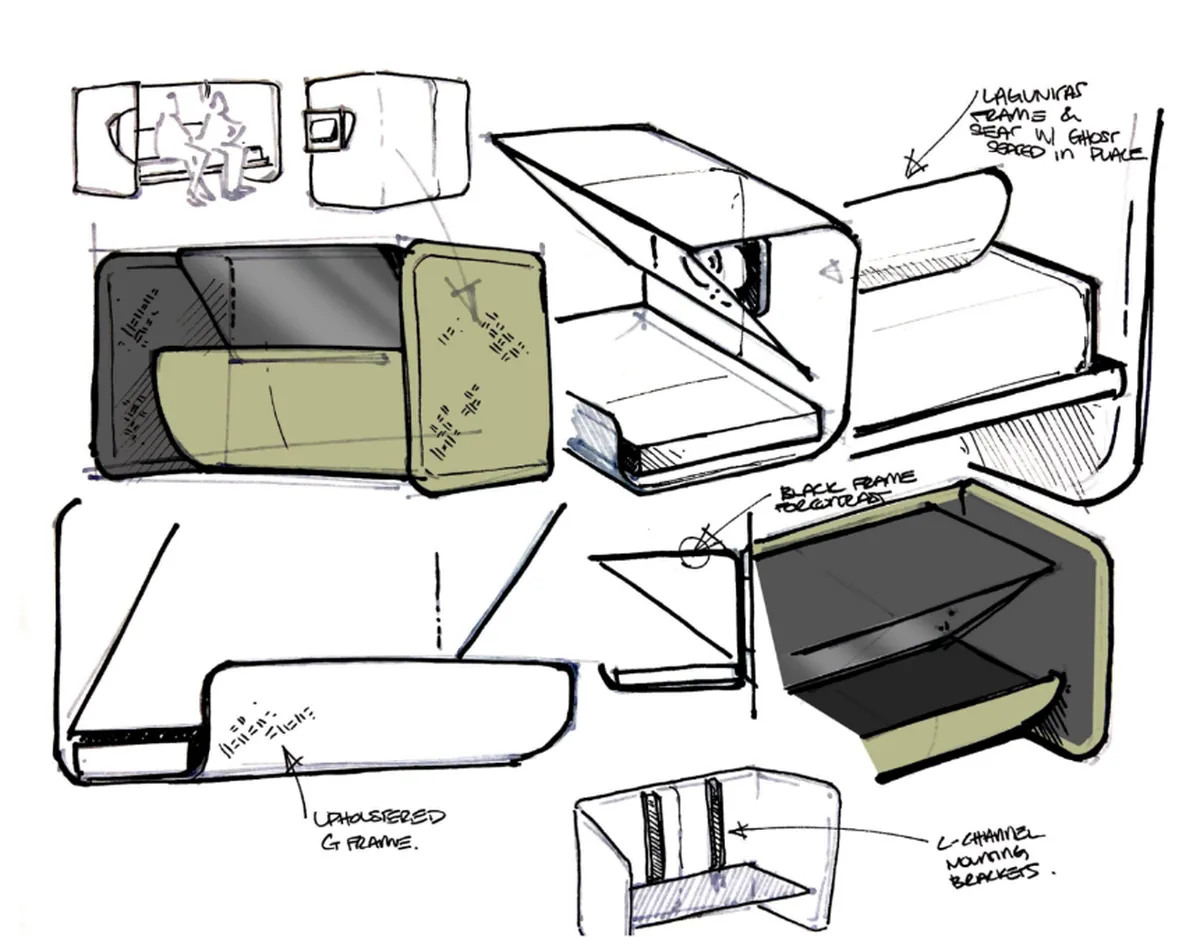 LAGUNITAS
FRAME &
SEAT W/ GHOST
SEATED IN PLACE
BLACK FRAME
FOR CONTRAST
UPHOLSTERED
G FRAME.
L-CHANNEL
MOUNTING
BRACKETS.